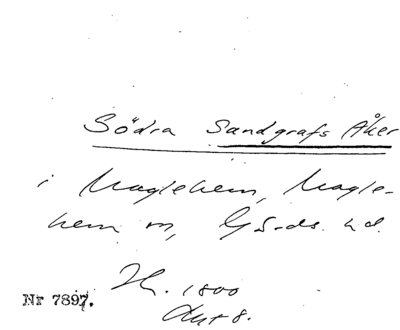 Södra Sandgrafs Åker
i Maglehem, Magle-
hem sn, Gärds hd.
H. 1800
Akt 8.
Nr 7897.